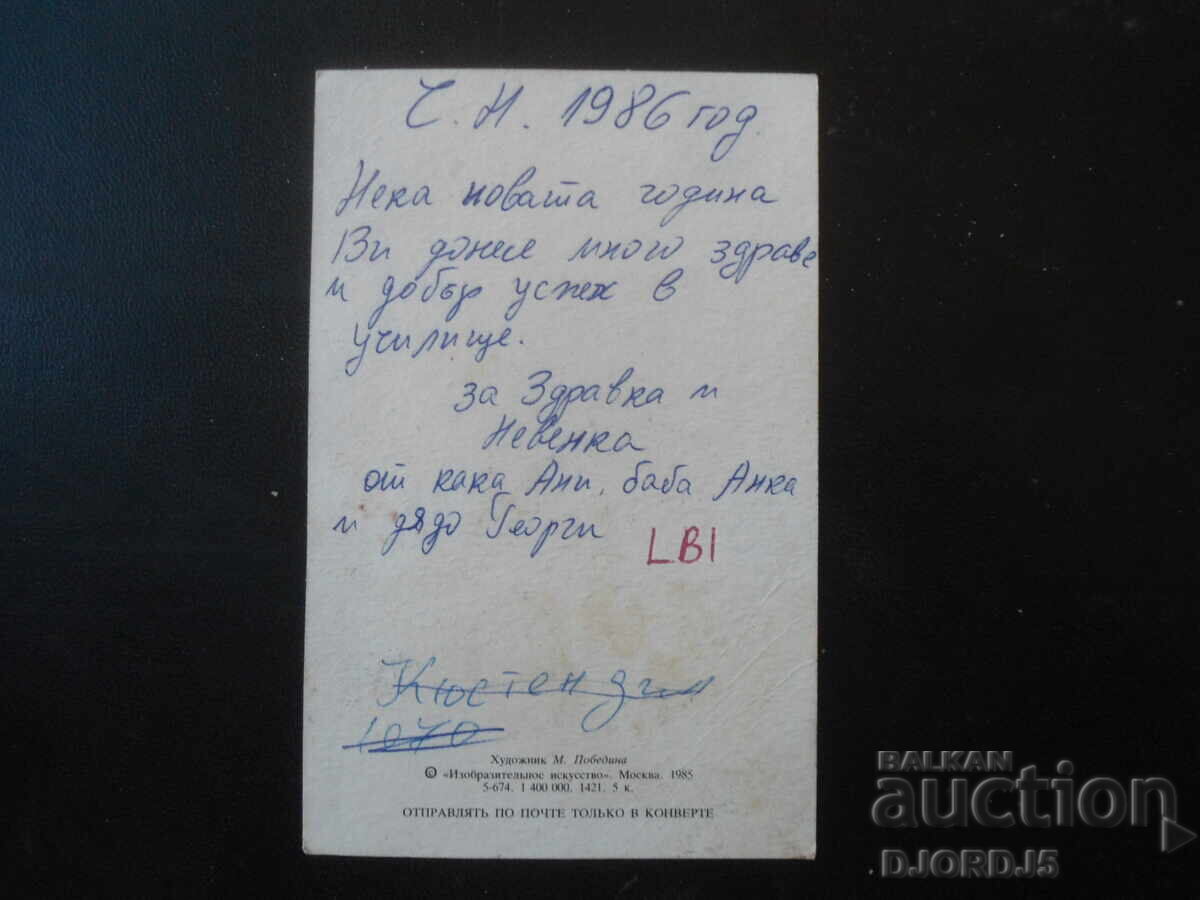 Ч. Н. 1986 год.
Нека новата година
Ви донесе много здраве
и добър успех в
училище.
за Здравка и
Невенка
от кака Ани, баба Анка
и дядо Георги
LBI
Кюстендил
1070
Художник М. Победина
© «Изобразительное искусство». Москва. 1985
5-674. 1 400 000. 1421. 5 к.
ОТПРАВЛЯТЬ ПО ПОЧТЕ ТОЛЬКО В КОНВЕРТЕ
BALKAN
auction
DJORDJ5